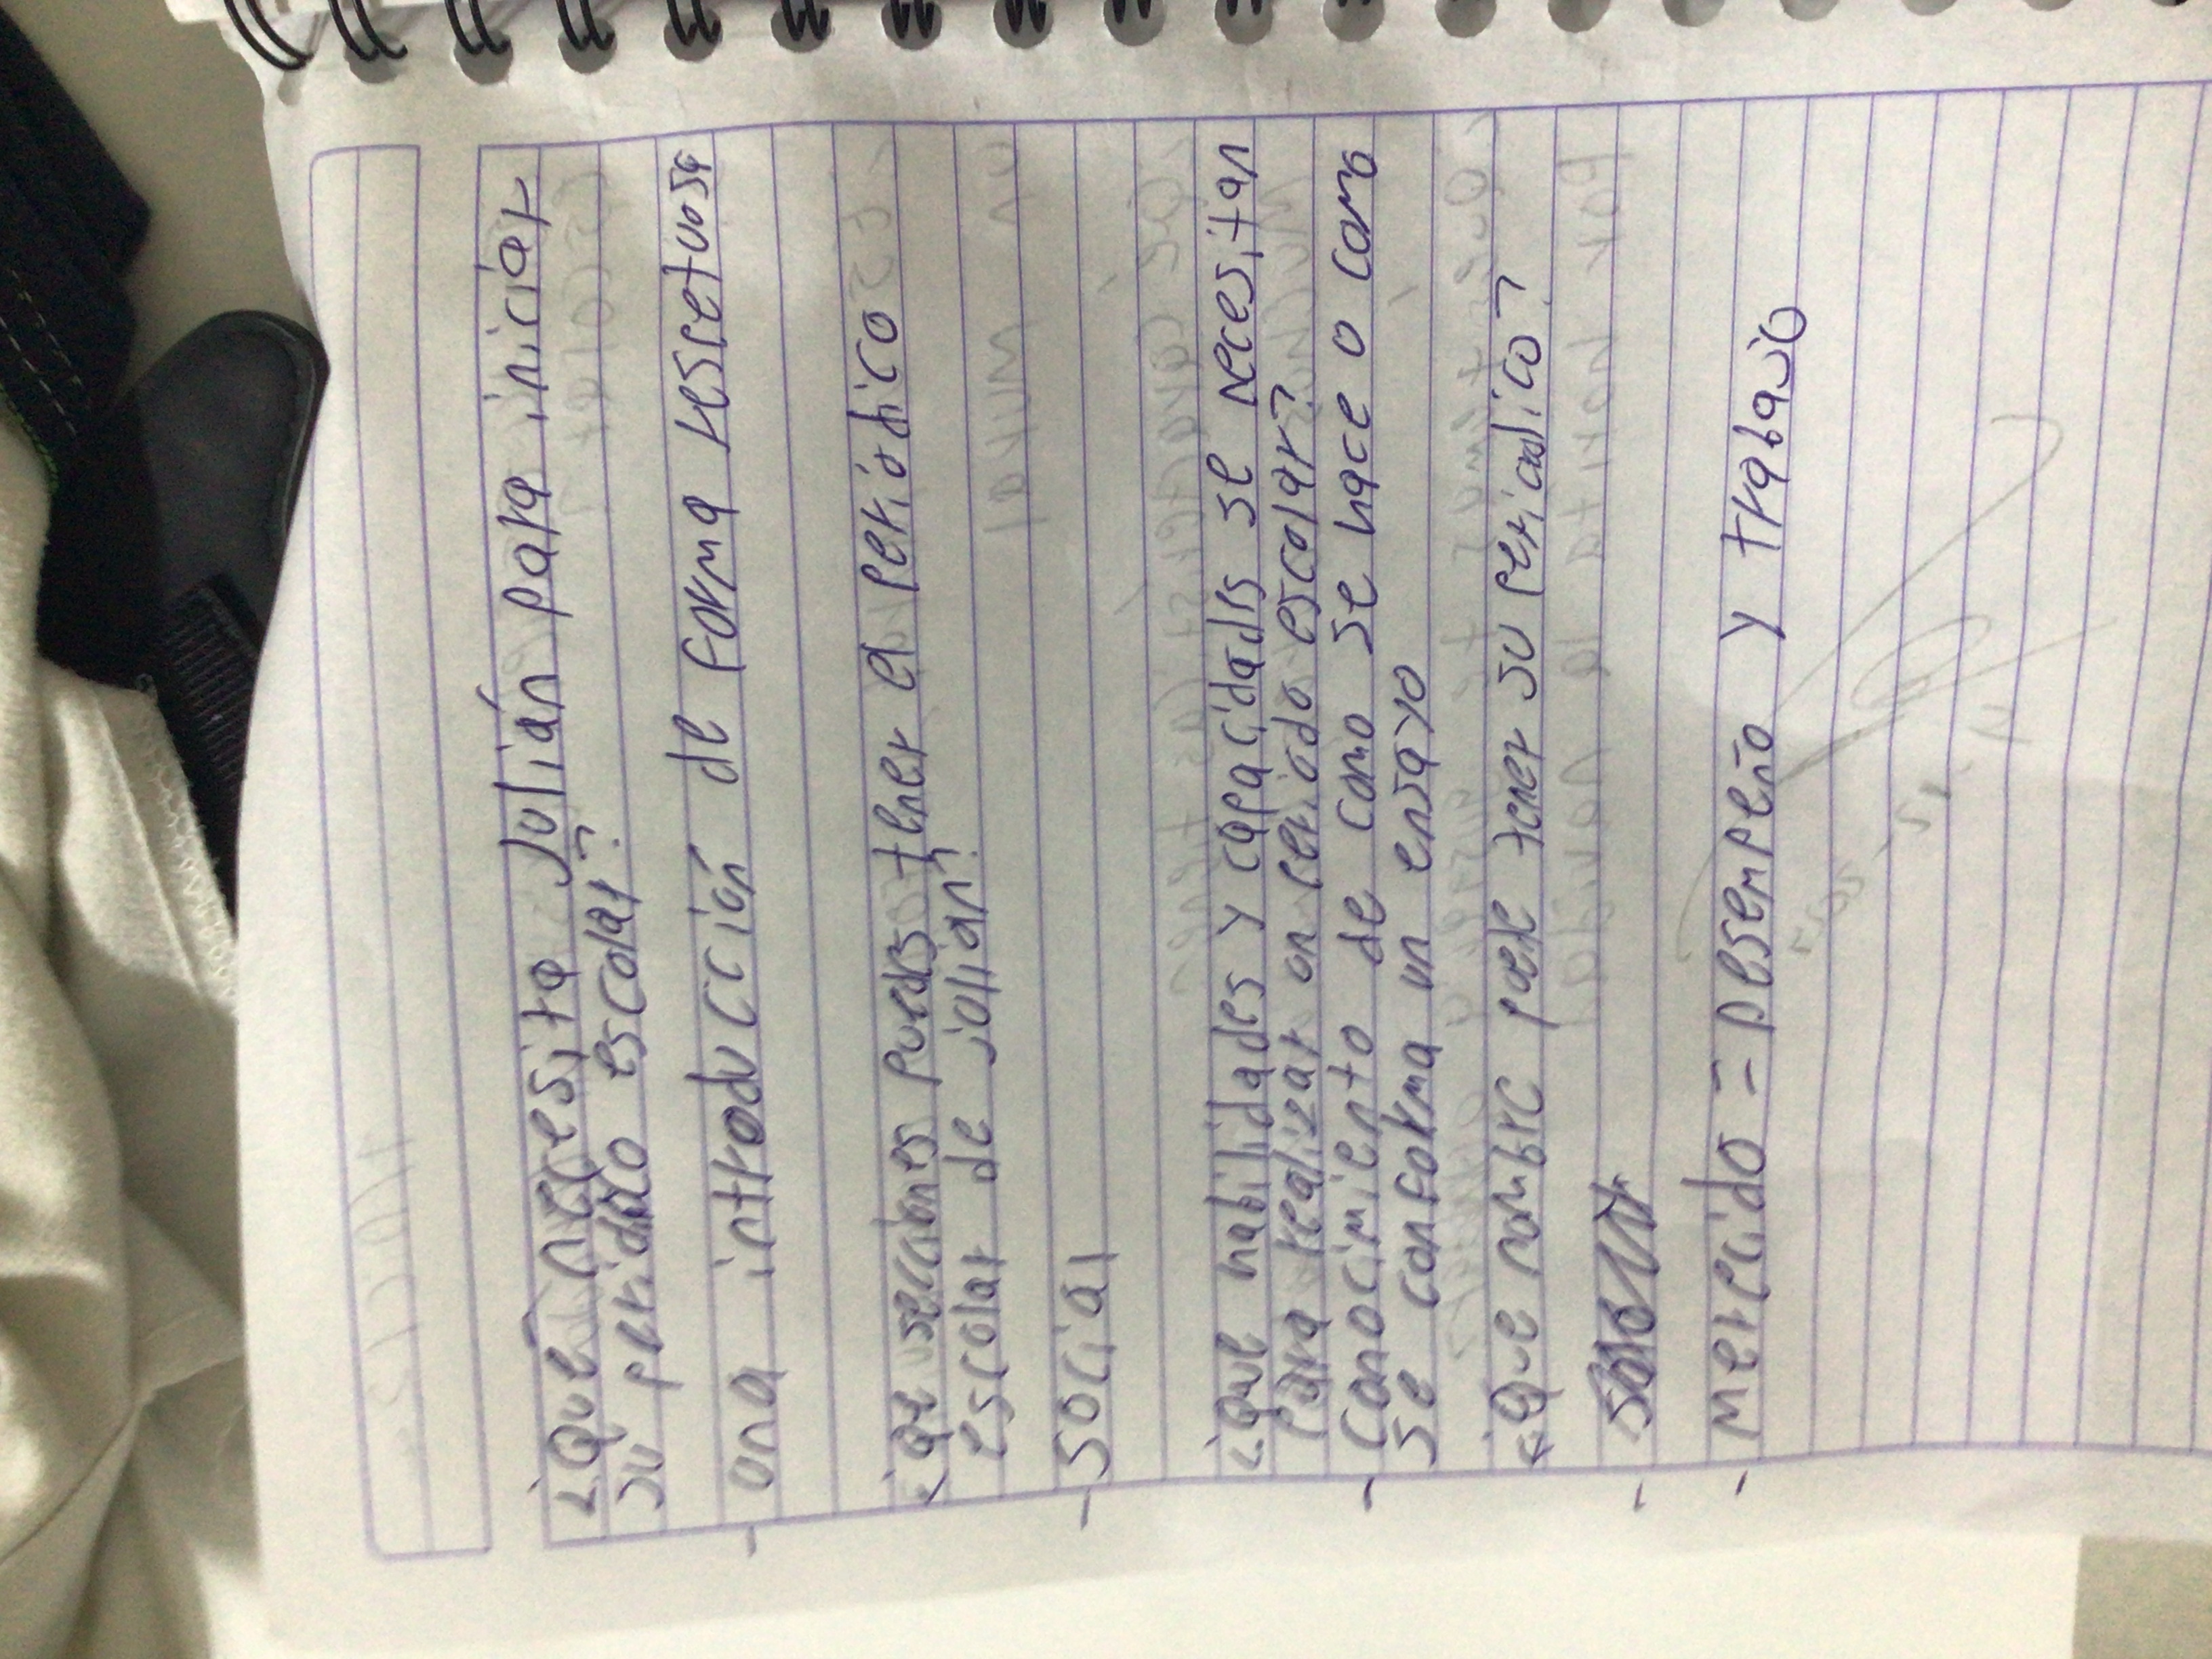 ¿Qué necesita Julián para iniciar
su periódico escolar?
- una introducción de forma respetuosa
¿Qe secciones puedes tener el periódico
escolar de julian?
- Social
¿Que habilidades y capacidades se necesitan
Para realizar un periódo escolar?
- Conocimiento de como se hace o como
se conforma un ensayo
¿Que nombre puede tener su periodico?
-
- Mercido = Desempeño y trabajo